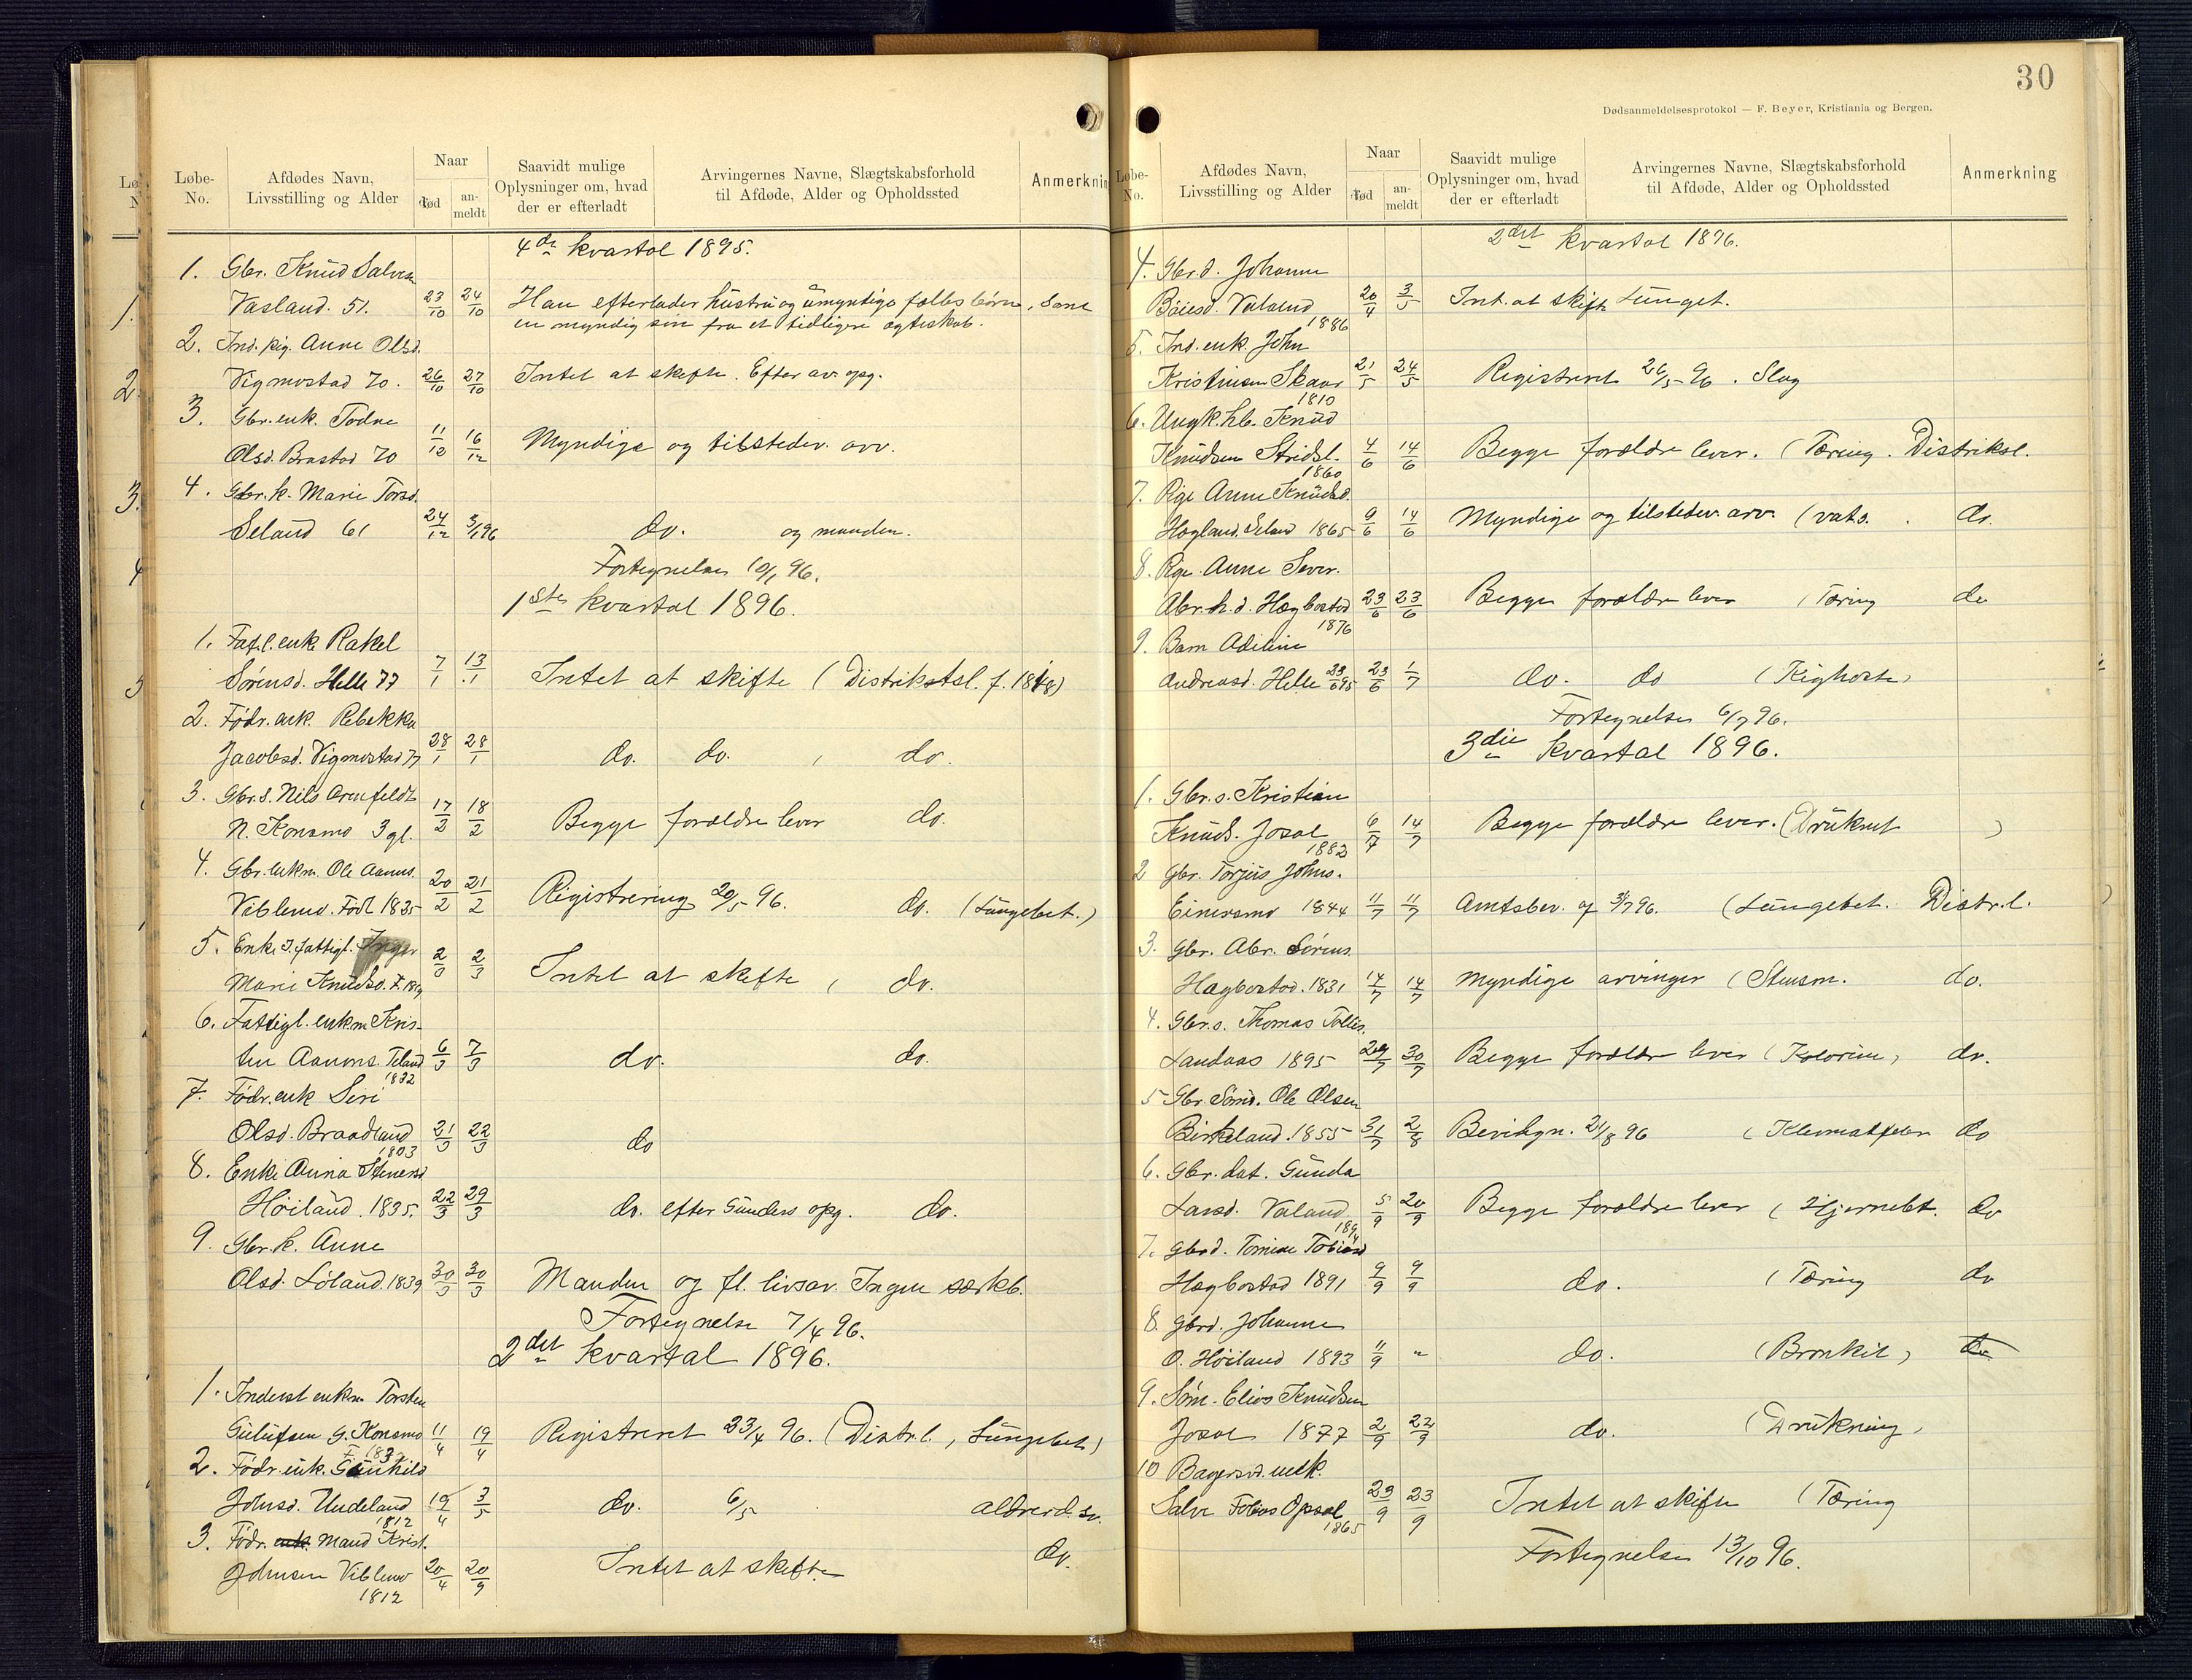 Løbe-No.
Afdødes Navn, Livsstilling og Alder
Naar
død
an-meldt
Saavidt mulige Oplysninger om, hvad der er efterladt
Arvingernes Navne, Slægtskabsforhold til Afdøde, Alder og Opholdssted
Anmerkning
4de kvartal 1895.
1. Gbr. Knud Salves.
Vasland. 51. 23/10 24/10 Han efterlader hustru og umyndige fælles børn, samt
en myndig søn fra et tidligere ægteskab.
2. Ind. pig. Anne Olsd.
Vigmostad 70. 26/10 27/10 Intet at skifte. Efter arv. opg.
3. Gbr. enk. Todne
Olsd. Brastad 70 11/12 16/12 Myndige og tilstedev. arv.
4. Gbr. k. Marie Torsd.
Seland 61 24/12 3/1 96 do. og manden.
Fortegnelse 10/1 96.
1ste kvartal 1896.
1. Fatl. enke Rakel
Sørensd. Helle 77 7/1 13/1 Intet at skifte (Distriktsl. f. 1818)
2. Fødr. enk. Rebekka
Jacobsd. Vigmostad 77 28/1 28/1 do. do. , do.
3. Gbr. s. Nils Arenfeldt
N. Konsmo 3 gl. 17/2 18/2 Begge forældre lever do.
4. Gbr. enkm. Ole Aanus.
Viblemo. Født 1835 20/2 21/2 Registrering 20/5 96. do. (Lungebet.)
5. Enke F. fattigl. Inger
Marie Knudsd. F. 1819 2/3 2/3 Intet at skifte , do.
6. Fattigl. enkm Kris-
ten Aanons. Teland 6/3 7/3 do. do.
1832
7. Fødr. enk Siri
Olsd. Braadland 21/3 22/3 do
1803
8. Enke Anna Stenersd
Høiland. 1835. 22/3 29/3 do. efter Gunders opg. do.
9. Gbr. k. Anne
Olsd. Løland. 1839 30/3 30/3 Manden og fl. livsarv. Ingen særkb.
Fortegnelse 7/4 96.
2det kvartal 1896.
1. Inderst enkm. Torsten
Gulufsen G. Konsmo 11/4 19/4 Registreret 23/4 96. (Distr.l., Lungebet)
2. Fødr. enk. Gunhild
Johnsd. Undeland 19/4 3/5 do. 6/5 alderd. sv.
1812
3. Fødr. mand Krist.
Johnsen Viblemo 20/4 20/9 Intet at skifte do.
1812
30
Dødsanmeldelsesprotokol — F. Beyer, Kristiania og Bergen.
Løbe-No.
Afdødes Navn, Livsstilling og Alder
Naar
død
an-meldt
Saavidt mulige Oplysninger om, hvad der er efterladt
Arvingernes Navne, Slægtskabsforhold til Afdøde, Alder og Opholdssted
Anmerkning
2det kvartal 1896.
4. Gbr. d. Johanne
Bøiesd. Valand 20/4 3/5 Int. at skift Lunget.
1886
5. Ind. enk. John
Kristensen Skaar 21/5 24/5 Registreret 26/5 96. Slag
1810
6. Ungk. hb. Knud
Knudsen Stridsl. 4/6 14/6 Begge forældre lever. (Tæring. Distriksl.
1860
7. Pige Anne Knudsd.
Hogland. Seland 1865 9/6 14/6 Myndige og tilstedev. arv. (vats. . do.
8. Pge. Anne Sever.
Abr. h. d. Hægbostad 23/6 23/6 Begge forældre lever (Tæring do
1876
9. Barn Adeline
Andreasd. Helle 23/6 95 23/6 1/7 do. do (Kighoste)
Fortegnelse 6/7 96.
3die kvartal 1896.
1. Gbr. s. Kristian
Knuds. Josal 6/7 14/7 Begge forældre lever. (Druknet )
1882
2 Gbr. Torjus Johns.
Einersmo 1844 11/7 11/7 Amtsbev. af 3/7 96. (Lungebet. Distr.l.
3. Gbr. Abr. Sørens.
Hægbostad. 1831 14/7 14/7 Myndige arvinger (Stensm. do.
4. Gbr. s. Thomas Tollis.
Landaas 1895 29/7 30/7 Begge forældre lever (Kolorine, do.
5 Gbr. Smd. Ole Olsen
Birkeland. 1855 31/7 2/8 Bevilgn. 24/8 96 (Klimatfeber do
6. Gbr. dat. Gunda
Larsd. Valand 5/9 20/9 Begge forældre lever (Hjernebt. do
1894
7. Gbr d. Tomine Tobiasd
Hægbostad 1891 9/9 9/9 do. (Tæring do
8. Gbrd. Johanne
O. Høiland 1893 11/9 " do. (Bronkit) do
9. Søn. Elias Knudsen
Josal 1877 2/9 22/9 do. (Drukning,
10 Bagersv. uelk.
Salve Tobias Opsal 23/9 23/9 Intet at skifte (Tæring
1865
Fortegnelse 13/10 96.